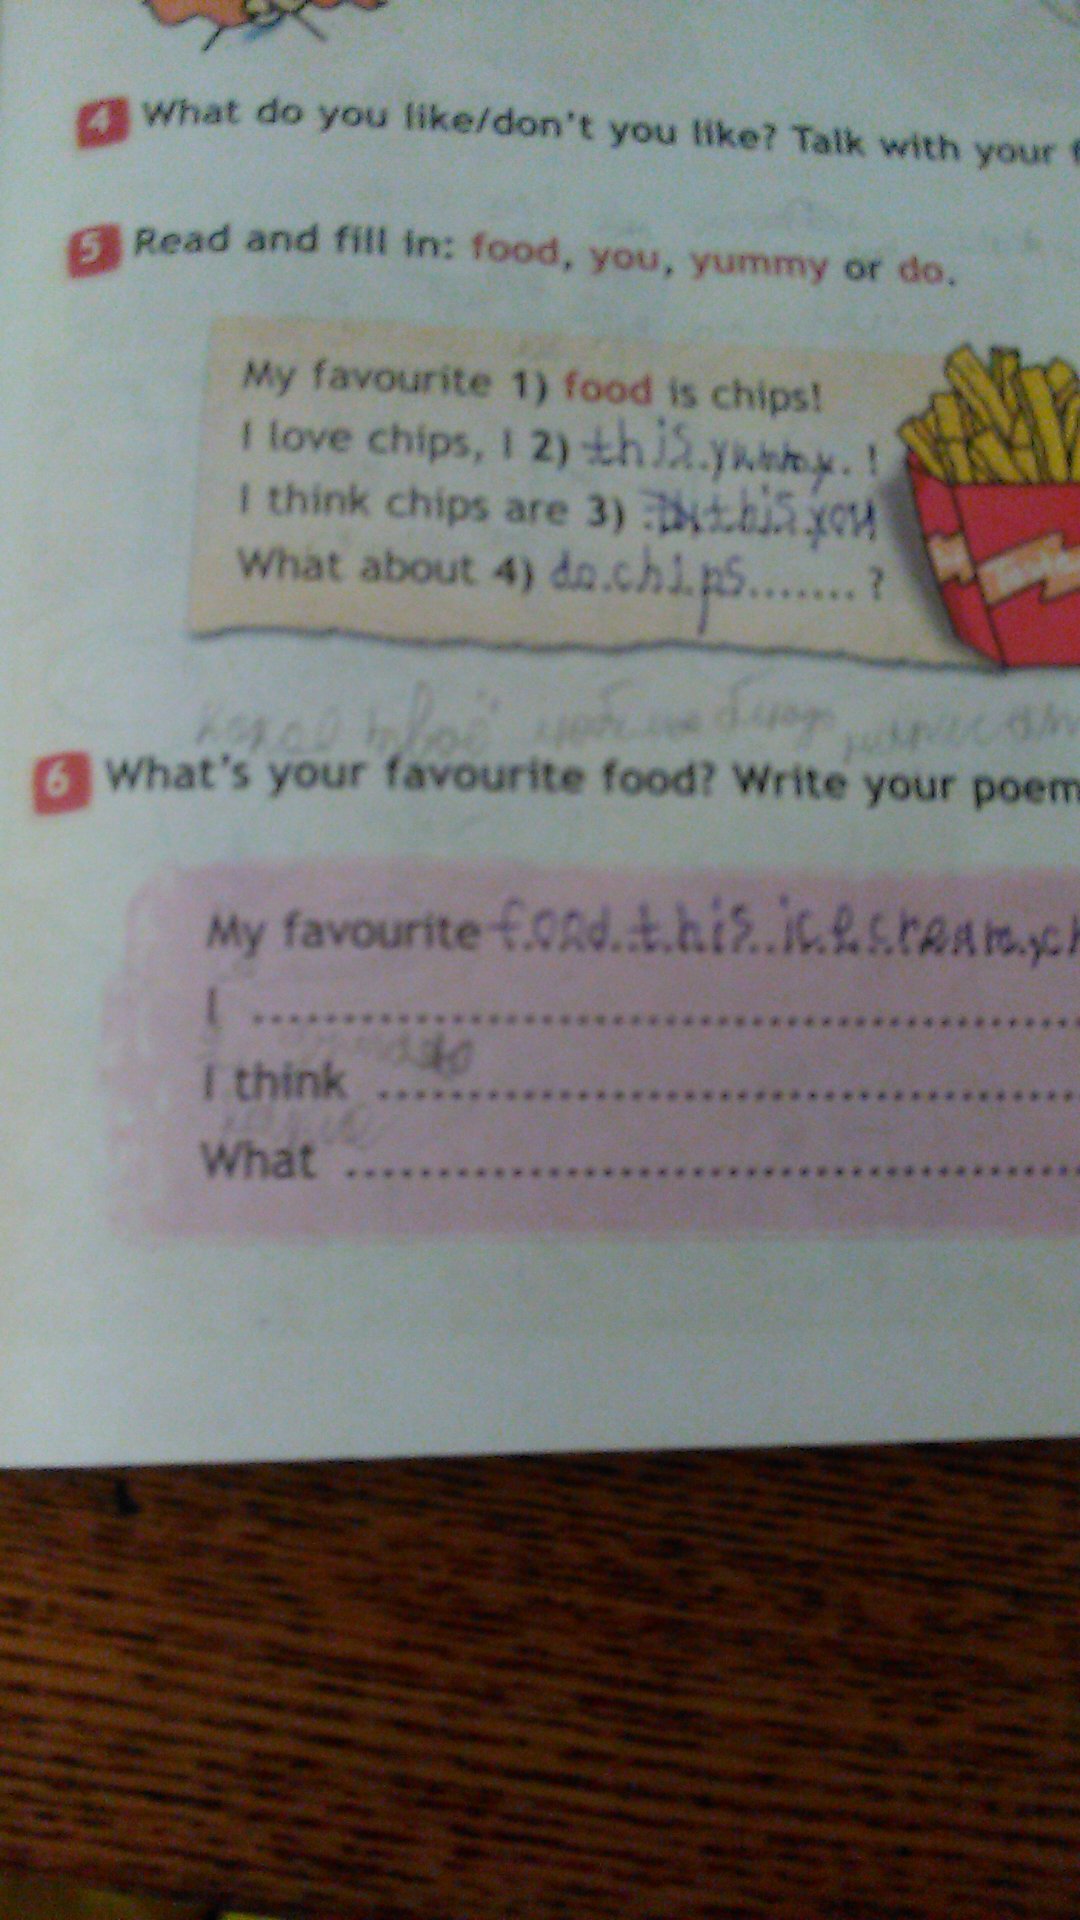 4 What do you like/don't you like? Talk with your f
5 Read and fill in: food, you, yummy or do.
My favourite 1) food is chips!
I love chips, I 2) this yummy. !
I think chips are 3) this you
What about 4) do chips........ ?
6 What's your favourite food? Write your poem
My favourite food this ice cream
I ........................................
I think ........................................
What ........................................